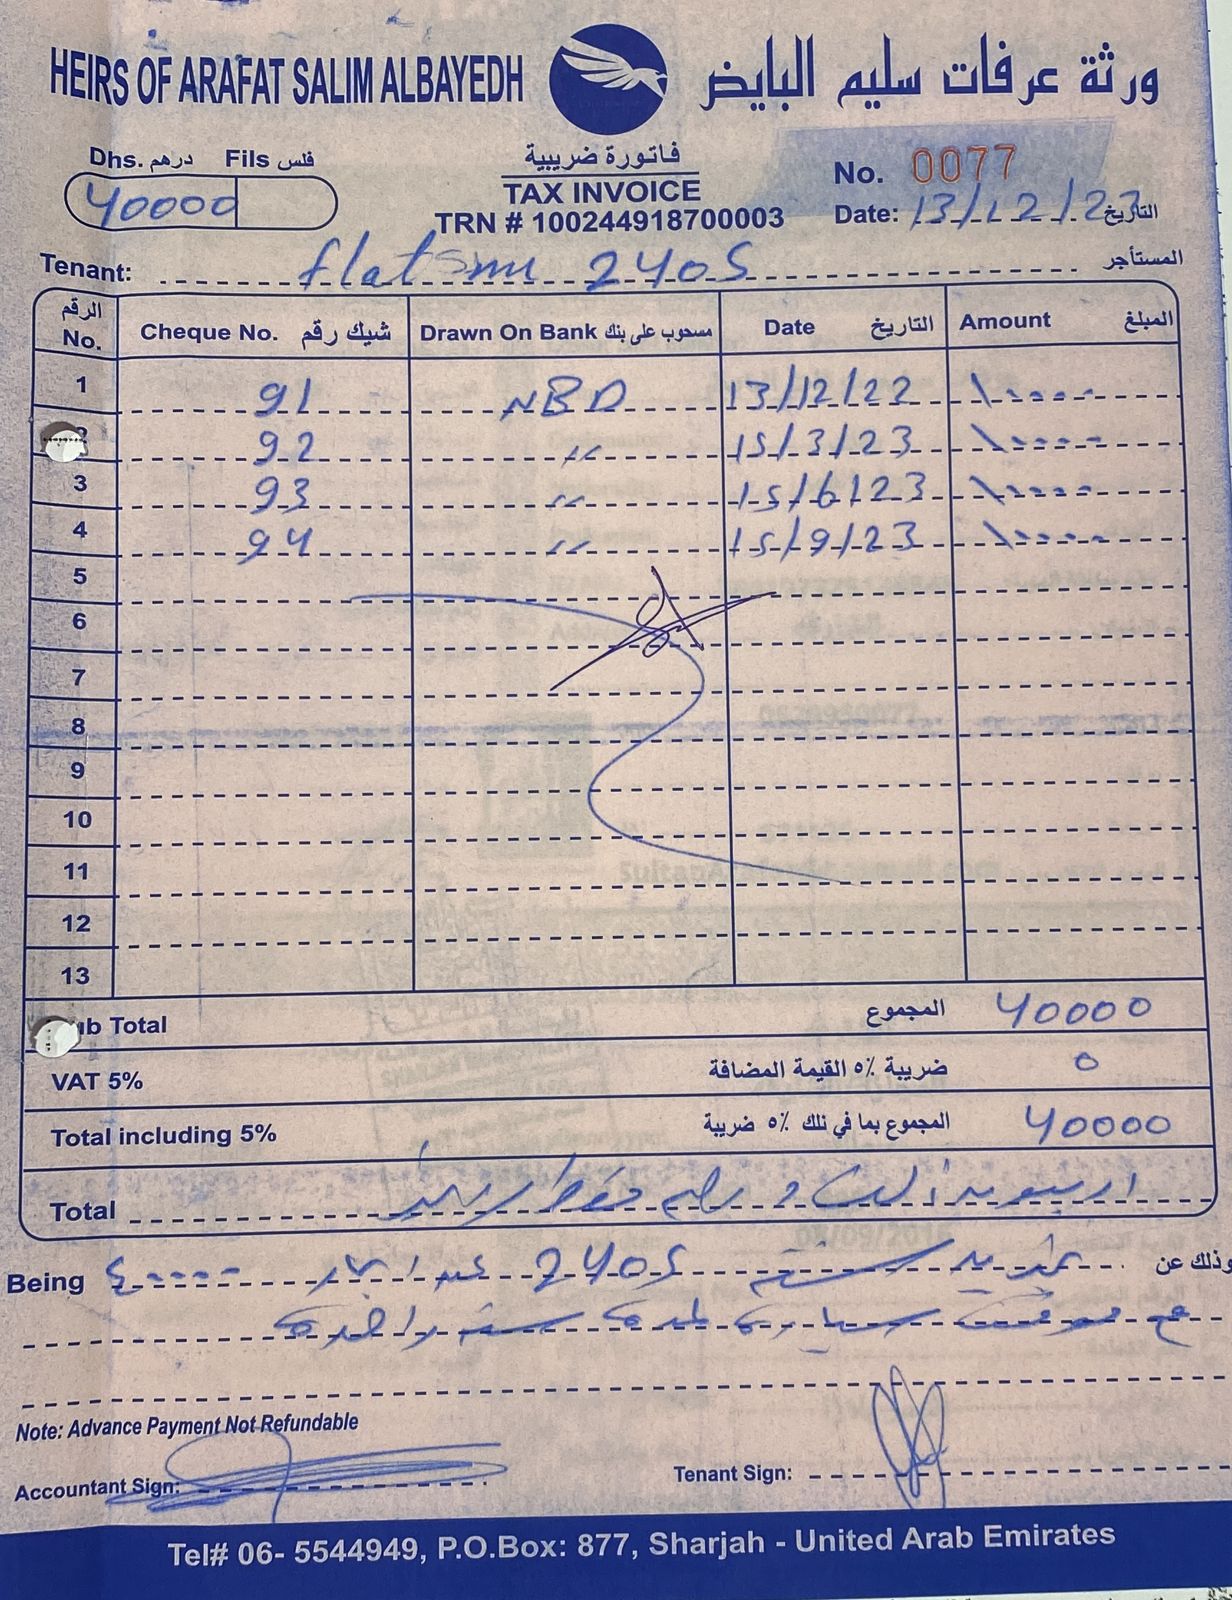 HEIRS OF ARAFAT SALIM ALBAYEDH ورثة عرفات سليم البايض
Dhs. درهم Fils فلس
40000
فاتورة ضريبية
TAX INVOICE
TRN # 100244918700003
No. 0077
Date: 13/12/23 التاريخ
Tenant: flat 2405 المستأجر
الرقم No. Cheque No. شيك رقم Drawn On Bank مسحوب على بنك Date التاريخ Amount المبلغ
1 91 NBD 13/12/22 ١٠٠٠٠
2 92 〃 15/3/23 ١٠٠٠٠
3 93 〃 15/6/23 ١٠٠٠٠
4 94 〃 15/9/23 ١٠٠٠٠
5
6
7
8
9
10
11
12
13
ub Total المجموع 40000
VAT 5% ضريبة ٥٪ القيمة المضافة 0
Total including 5% المجموع بما في ذلك ٥٪ ضريبة 40000
Total اربعون ألف درهم فقط
Being ٤٠٠٠٠ 2405 وذلك عن
مع موقف سيارة لمدة سنة واحدة
Note: Advance Payment Not Refundable
Accountant Sign:
Tenant Sign:
Tel# 06- 5544949, P.O.Box: 877, Sharjah - United Arab Emirates